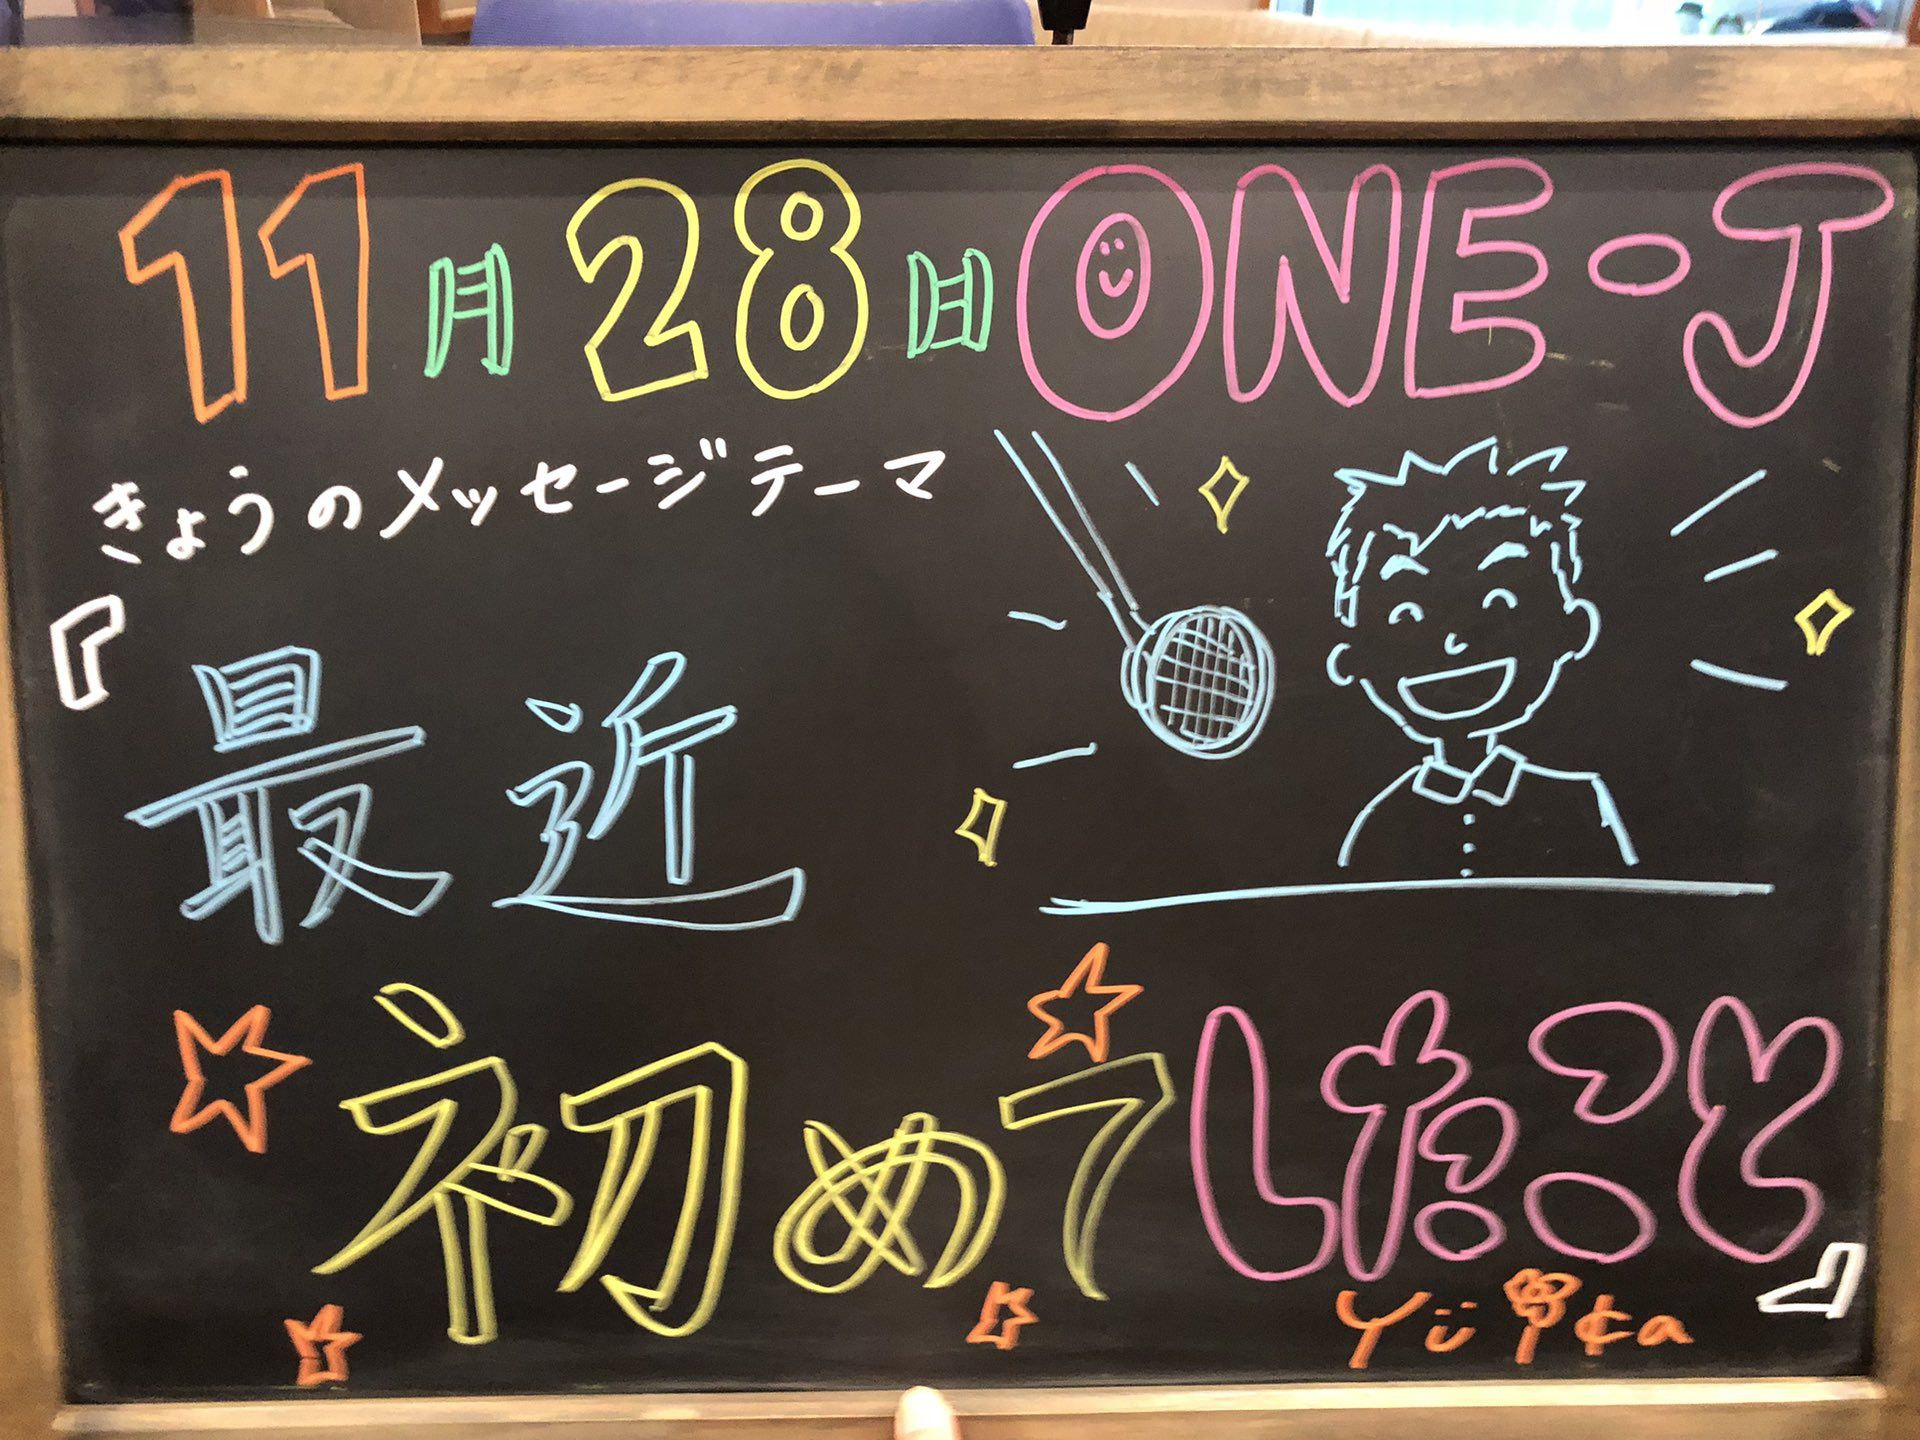 11月28日 ONE-J
きょうのメッセージテーマ
『最近
初めてしたこと』
Yüika